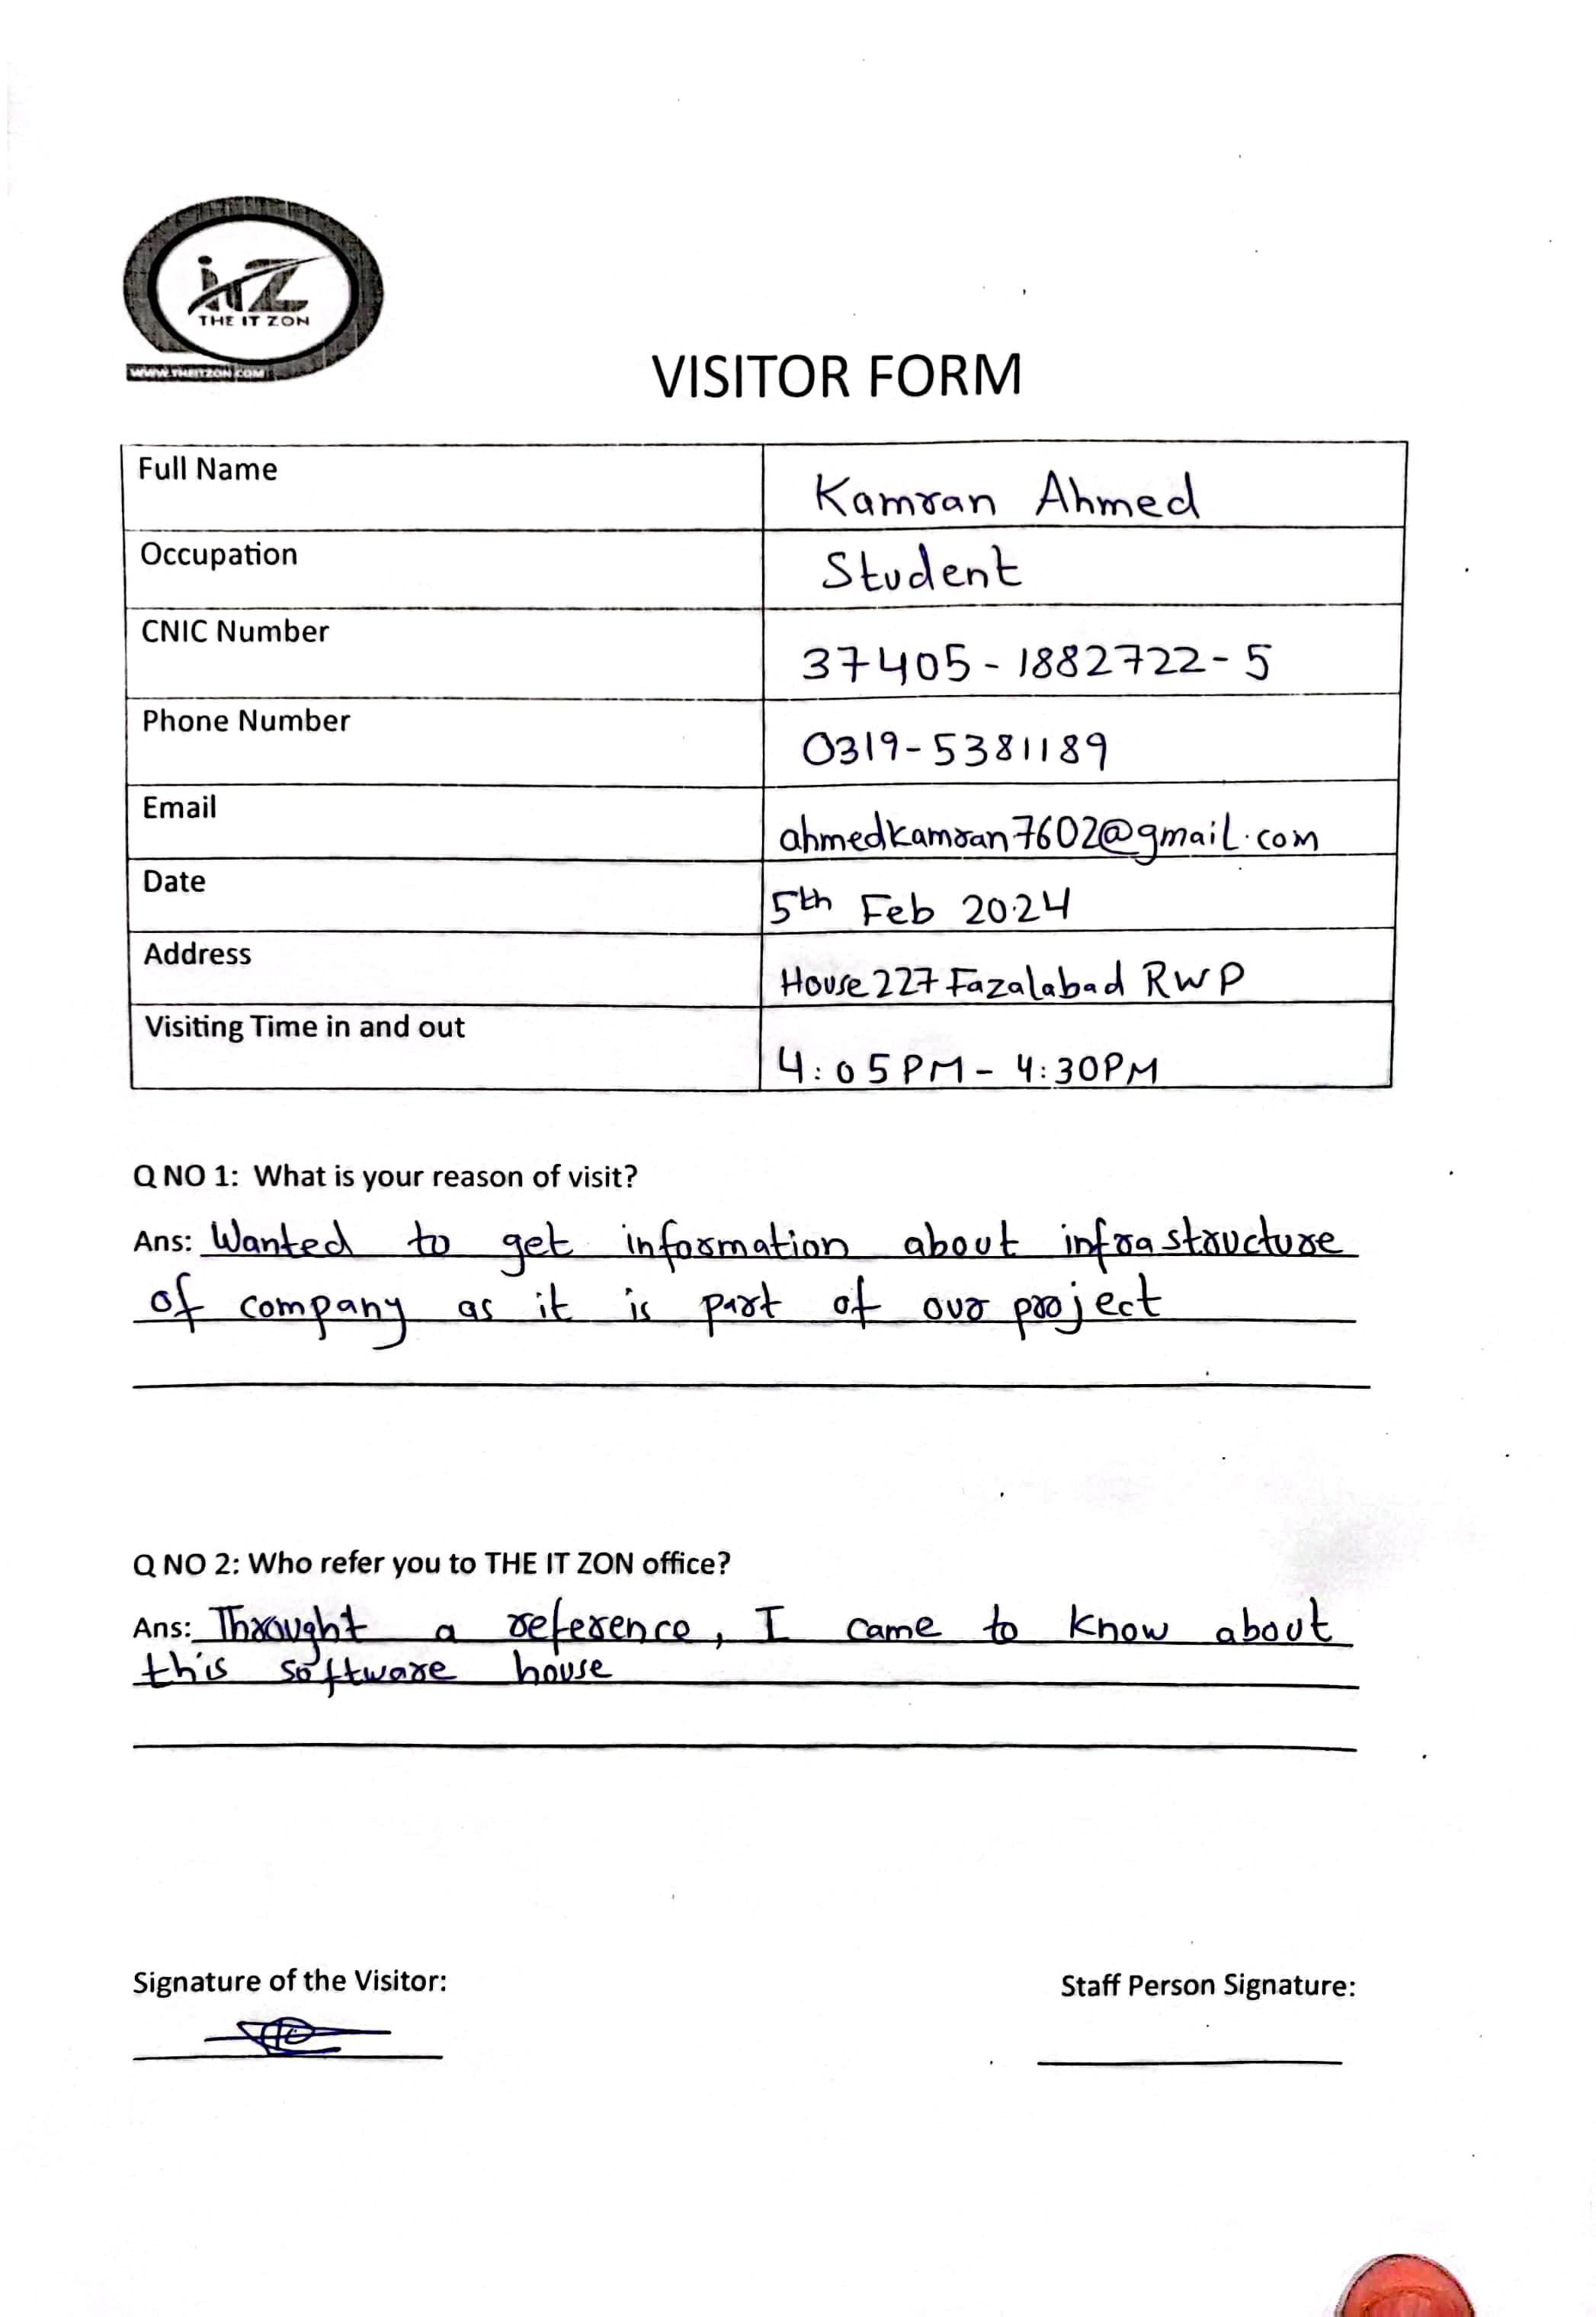 itZ
THE IT ZON
WWW.THEITZON.COM
VISITOR FORM
Full Name Kamran Ahmed
Occupation Student
CNIC Number 37405-1882722-5
Phone Number 0319-5381189
Email ahmedkamran7602@gmail.com
Date 5th Feb 2024
Address House 227 Fazalabad RWP
Visiting Time in and out 4:05PM-4:30PM
Q NO 1: What is your reason of visit?
Ans: Wanted to get information about infrastructure
of company as it is part of our project
Q NO 2: Who refer you to THE IT ZON office?
Ans: Throught a reference, I came to know about
this software house
Signature of the Visitor: Staff Person Signature: